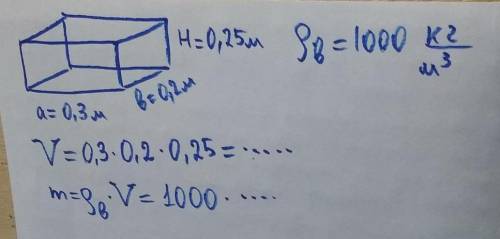 H=0,25м
ρв=1000 кг/м³
в=0,2м
a=0,3м
V=0,3·0,2·0,25=.....
m=ρв·V=1000·.....